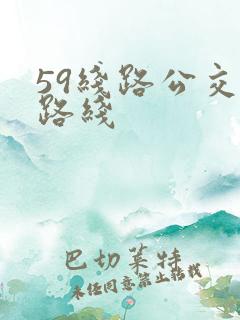 59线路公交
路线
巴切莱特
未经同意禁止转载